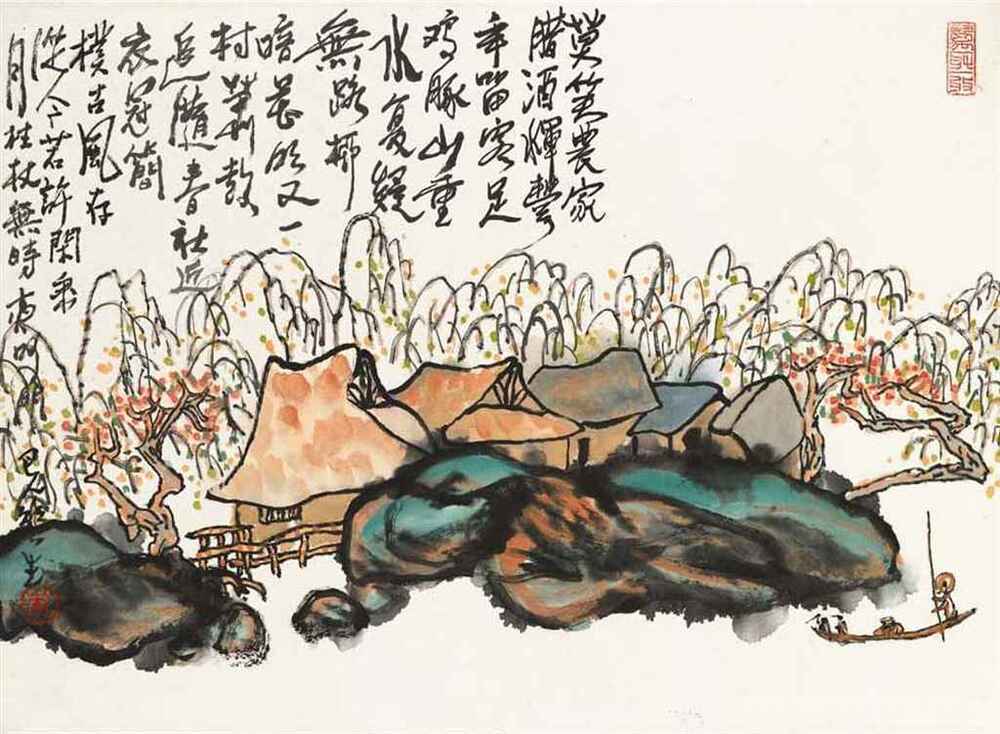 莫笑農家
腊酒渾豐
年留客足
鸡豚山重
水复疑
無路柳
暗花明又一
村簫鼓
追隨春社近
衣冠簡
樸古風存
從今若許閑乘
月拄杖無時夜叩門